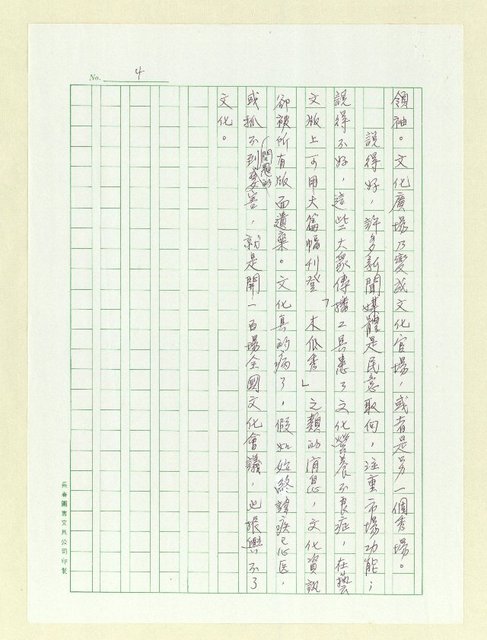 No. 4
領袖。文化廣場乃變成文化官場，或者是另一個秀場。
說得好，許多新聞媒體是民意取向，注重市場功能；
說得不好，這些大眾傳播工具患了文化營養不良症，在藝
文版上可用大篇幅刊登「木瓜秀」之類的消息，文化資訊
卻被所有版面遺棄。文化真的病了，假如始終諱疾忌醫，
或抓不到問題的要害，就是開一百場全國文化會議，也振興不了
文化。
長青圖書文具公司印製